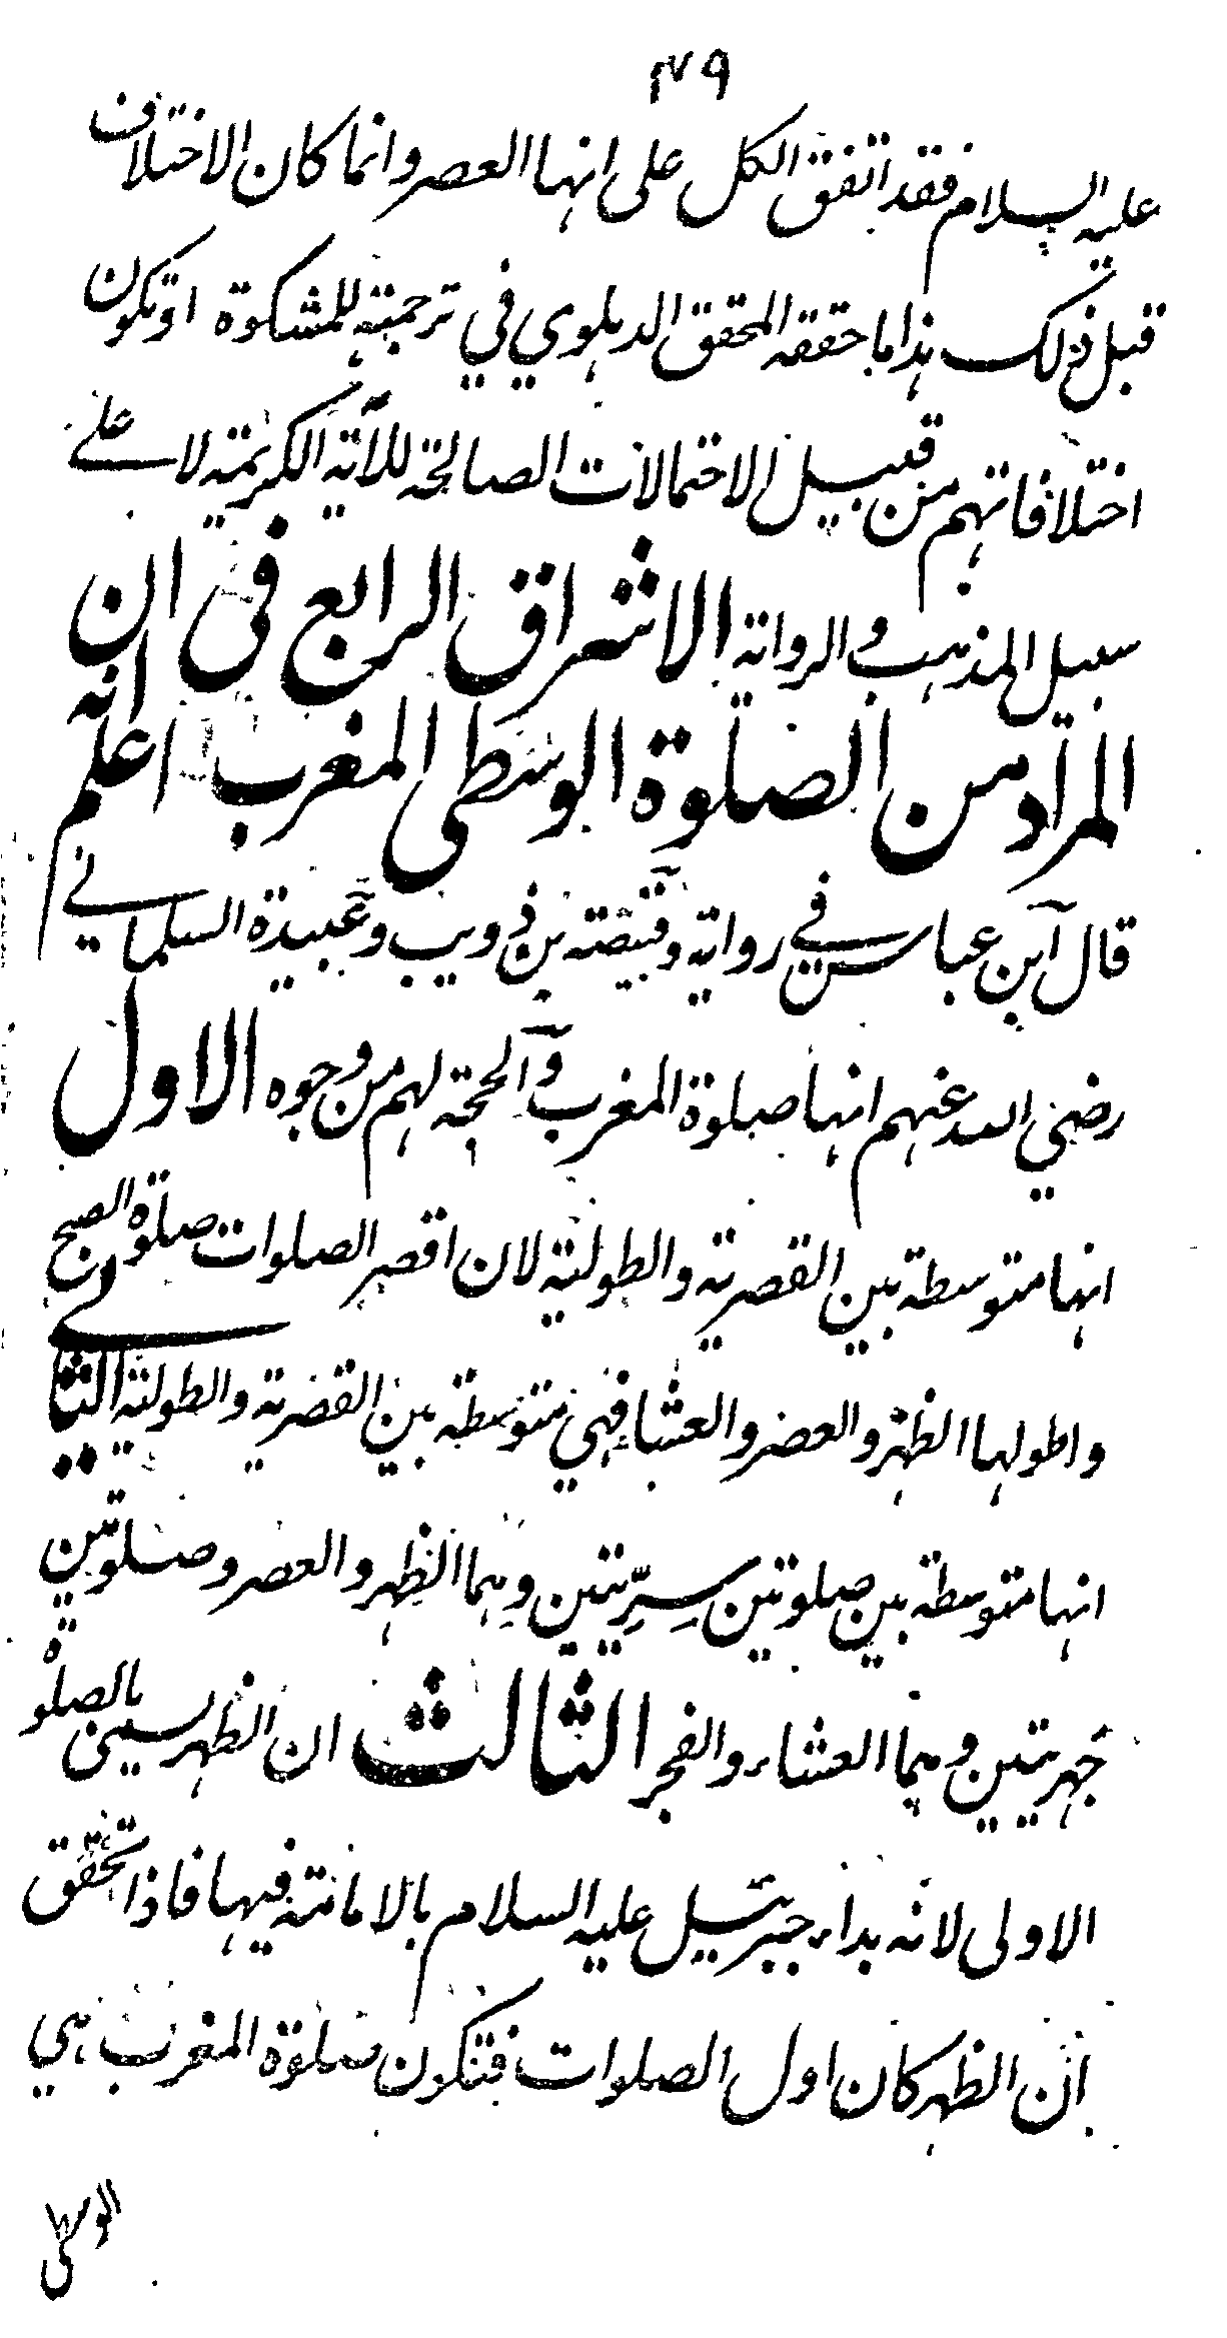 ٣٩
عليه السلام فقد اتفق الكل على انها العصر وانما كان الاختلاف
قبل ذلك هذا ما حققه المحقق الدهلوي في ترجمته للمشكوة او تكون
اختلافاتهم من قبيل الاحتمالات الصالحة للآية الكريمة لا على
سبيل المذهب والرواية الاشراق الرابع في ان
المراد من الصلوة الوسطى المغرب اعلم انه
قال ابن عباس في رواية وقبيصة بن ذويب وعبيدة السلماني
رضي الله عنهم انها صلوة المغرب والحجة لهم من وجوه الاول
انها متوسطة بين القصرية والطولية لان اقصر الصلوات صلوة الصبح
واطولها الظهر والعصر والعشاء فهي متوسطة بين القصرية والطولية الثاني
انها متوسطة بين صلوتين سرّيتين وهما الظهر والعصر وصلوتين
جهريتين وهما العشاء والفجر الثالث ان الظهر يسمى بالصلوة
الاولى لانه بداء جبرئيل عليه السلام بالامامة فيها فاذا تحقق
ان الظهر كان اول الصلوات فتكون صلوة المغرب هي
الوسطى